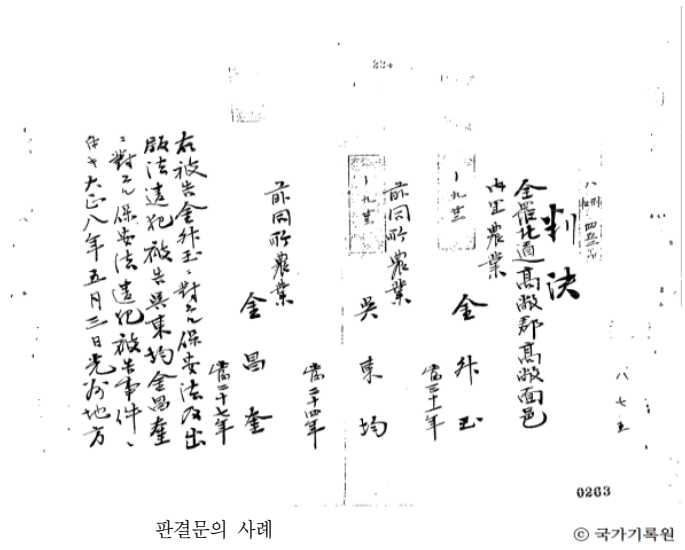 判決
全羅北道高敞郡高敞面邑
内里農業
金升玉
當三十一年
前同所農業
吳東均
當二十四年
前同所農業
金昌奎
當二十七年
右被告金升玉ニ對スル保安法及出
版法違犯被告吳東均金昌奎
ニ對スル保安法違犯被告事件ニ
付キ大正八年五月三日光州地方
0263
판결문의 사례
© 국가기록원